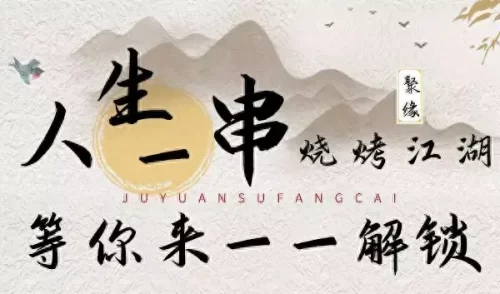 人生一串 烧烤江湖
聚缘
JUYUANSUFANGCAI
等你来一一解锁